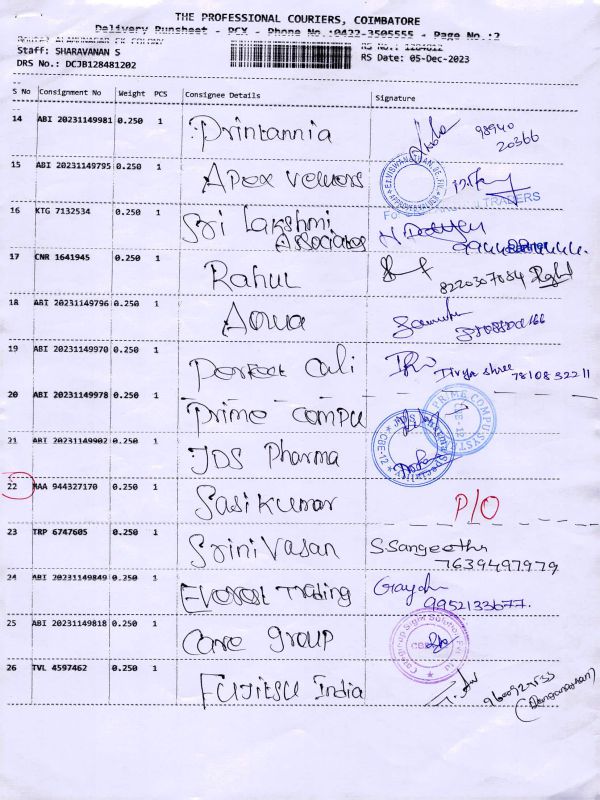 THE PROFESSIONAL COURIERS, COIMBATORE
Delivery Runsheet - PCX - Phone No.:0422-3505555 - Page No.:2
Staff: SHARAVANAN S
RS No.: 1284812
DRS No.: DCJB128481202
RS Date: 05-Dec-2023
S No Consignment No Weight PCS Consignee Details Signature
14 ABI 20231149981 0.250 1 Printannia 98940
20366
15 ABI 20231149795 0.250 1 Apex Valuers
16 KTG 7132534 0.250 1 Sri Lakshmi
Associates
17 CNR 1641945 0.250 1 Rahul 8220307084
18 ABI 20231149796 0.250 1 Aqua
19 ABI 20231149970 0.250 1 Perfect Cali Divya shree
78108 32211
20 ABI 20231149978 0.250 1 Prime Compu PRIME COMPUSYST
21 ABI 20231149902 0.250 1 JDS Pharma CBE-12
22 MAA 944327170 0.250 1 Sasikumar P/O
23 TRP 6747605 0.250 1 Srinivasan S. Sangeetha
7639497979
24 ABI 20231149849 0.250 1 Everest Trading Gayathri
9952133677.
25 ABI 20231149818 0.250 1 Care group
26 TVL 4597462 0.250 1 Fujitsu India